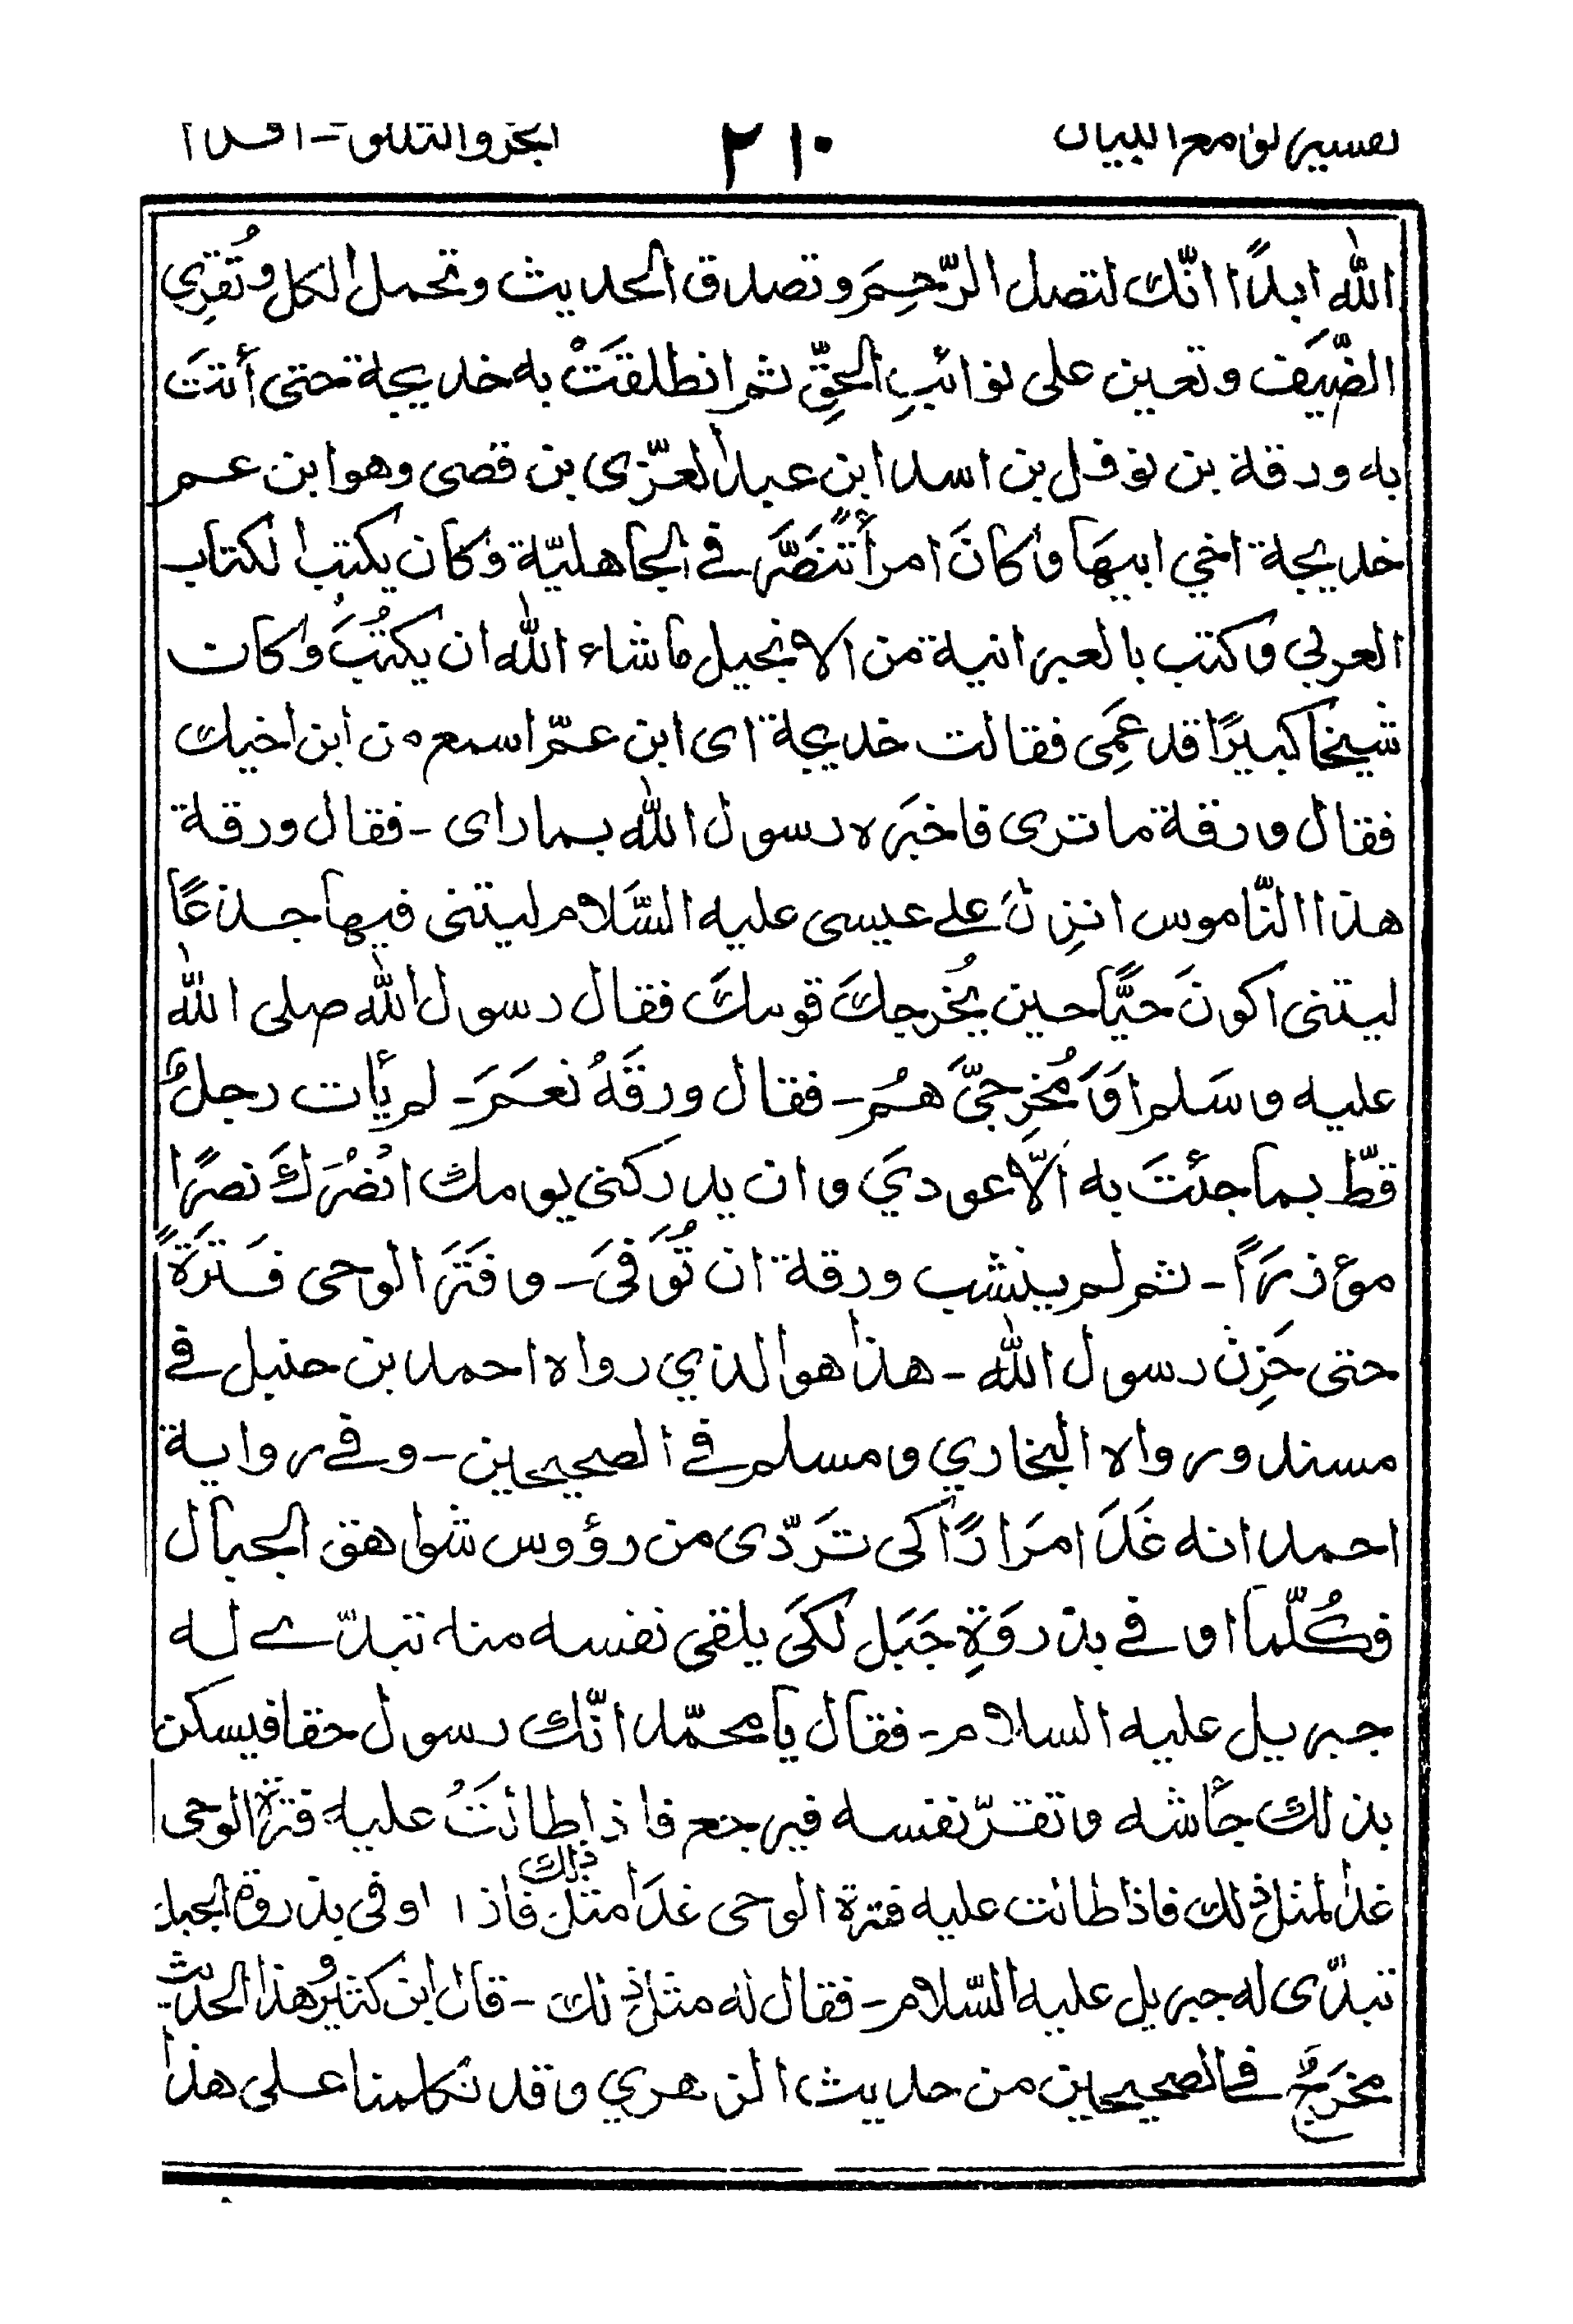 تفسير لوامع البيان ٢١٠ الجزو الثلثون - اقرا
الله ابدًا انّك لتصل الرّحِمَ وتصدق الحديث وتحمل الكل وتُقرِي
الضّيَف وتعين على نوائبِ الحقِّ ثم انطلقَتْ به خديجة حتى أتتَ
به ورقة بن نوفل بن اسد ابن عبد العزّى بن قصى وهو ابن عم
خديجة اخي ابيهَا وكانَ امرأً تَنَصَّرَ في الجاهليّة وكان يكتب الكتاب
العربي وكتب بالعبرانية من الانجيل ما شاء الله ان يكتُبَ وكان
شيخا كبيرًا قد عَمِى فقالت خديجة اى ابن عمّ اسمع من ابن اخيك
فقال ورقة ما ترى فاخبَره رسول الله بما راى - فقال ورقة
هذا النّاموس انزِلَ على عيسى عليه السَّلام ليتنى فيها جذعًا
ليتنى اكونَ حيًّا حين يُخرجكَ قومكَ فقال رسول الله صلى الله
عليه وسَلم اَوَمُخرِجيَّ هُم - فقال ورقَهُ نعَمَ - لم يأت رجلٌ
قطّ بما جئتَ به الّا عودي وان يدركنى يومك انصُرَكَ نصرًا
مؤزرًا - ثم لم ينشب ورقة ان تُوَفىَ - وفَتَرَ الوحى فَترَةً
حتى حَزِنَ رسول الله - هذا هو الذي رواه احمد بن حنبل في
مسند ورواه البخاري ومسلم في الصحيحين - وفي رواية
احمد انه غَدَا مرَارًا كى تَردّى من رؤوس شواهق الجبال
فكُلّما اوفى بذروَةِ جَبَل لكَى يلقى نفسه منه تبدّى له
جبريل عليه السلام - فقال يا محمّد انّك رسول حقا فيسكن
بذلك جأشه وتقرّ نفسه فيرجع فاذا طالتَ عليه فترة الوحى
غدا لمثل ذلك فاذا طالت عليه فترة الوحى غدَا مثل ذلك فاذا اوفى بذروة الجبل
تبدّى له جبريل عليه السّلام - فقال له مثل ذلك - قال ابن كثيرُ هذا الحديث
مخرَجٌ في الصحيحين من حديث الزهري وقد تكلمنا على هذا